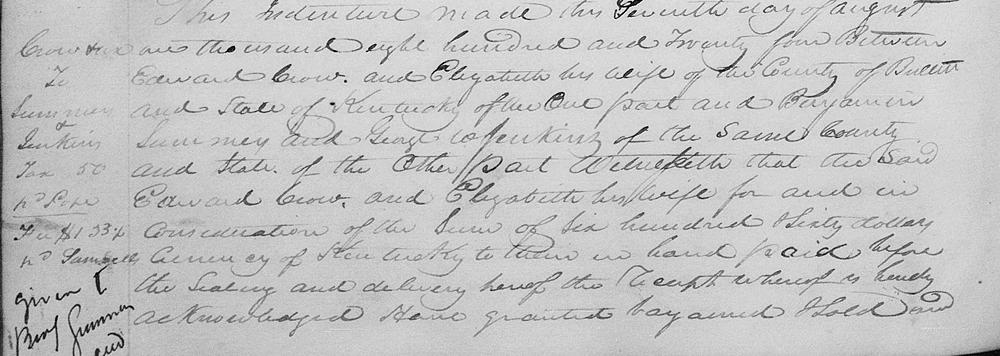 This Indenture made this Seventh day of august
Crow & ux one thousand eight hundred and Twenty four Between
To Edward Crow. and Elizabeth his wife of the County of Bullitt
Summey and State of Kentucky of the One part and Benjamin
& Jenkins Summey and George Jenkins of the Same County
Tax 50 and State. of the Other part Witnesseth that the Said
Edward Crow. and Elizabeth his wife for and in
Fee $1.33¼ Consideration of the Sum of Six hundred & Sixty dollars
pd Currency of Kentucky to them in hand paid before
the Sealing and delivery hereof the Receipt whereof is hereby
acknowledged Have granted bargained & Sold and
given
Benj Summey
and